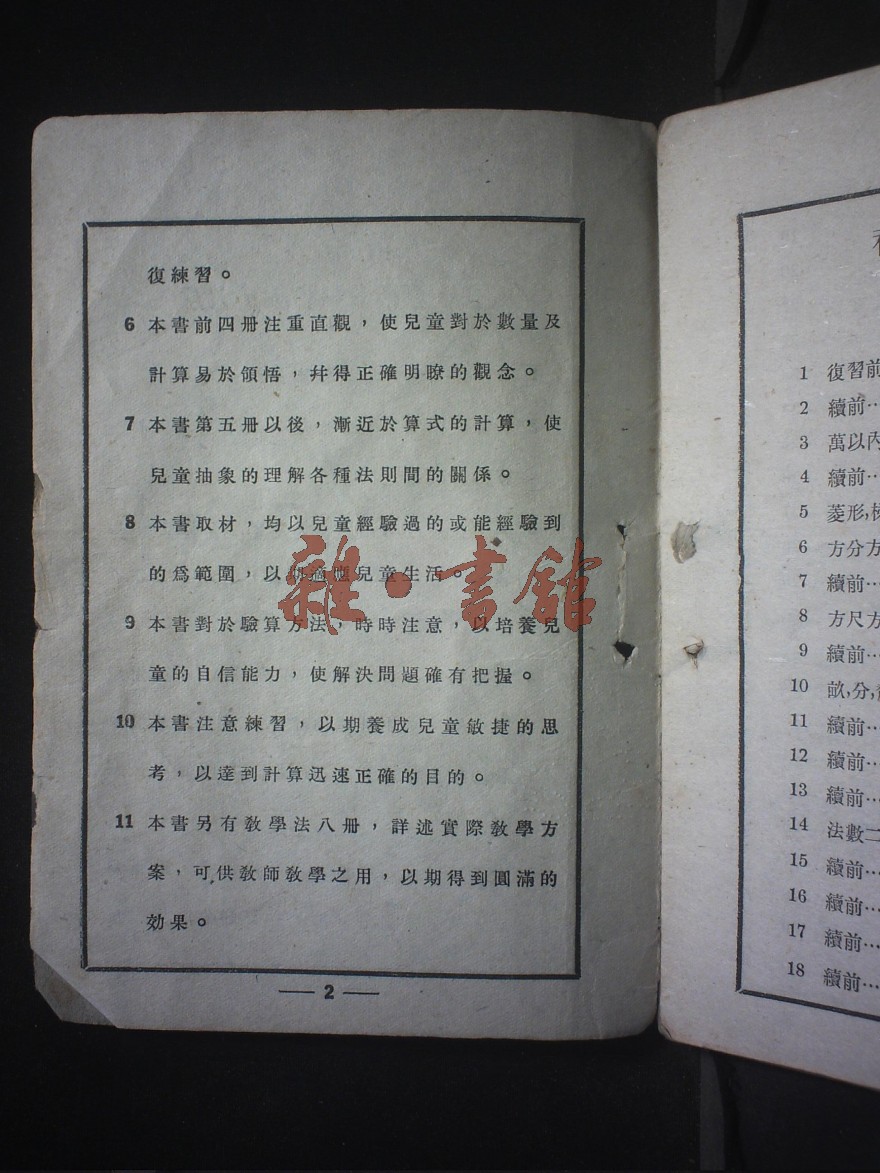 復練習。
6 本書前四冊注重直觀，使兒童對於數量及
計算易於領悟，幷得正確明瞭的觀念。
7 本書第五冊以後，漸近於算式的計算，使
兒童抽象的理解各種法則間的關係。
8 本書取材，均以兒童經驗過的或能經驗到
的爲範圍，以適應兒童生活。
9 本書對於驗算方法，時時注意，以培養兒
童的自信能力，使解決問題確有把握。
10 本書注意練習，以期養成兒童敏捷的思
考，以達到計算迅速正確的目的。
11 本書另有敎學法八冊，詳述實際敎學方
案，可供敎師敎學之用，以期得到圓滿的
効果。
2
雜·書館
1 復習前
2 續前…
3 萬以內
4 續前…
5 菱形,梯
6 方分方
7 續前…
8 方尺方
9 續前…
10 畝,分,
11 續前…
12 續前…
13 續前…
14 法數二
15 續前…
16 續前…
17 續前…
18 續前…